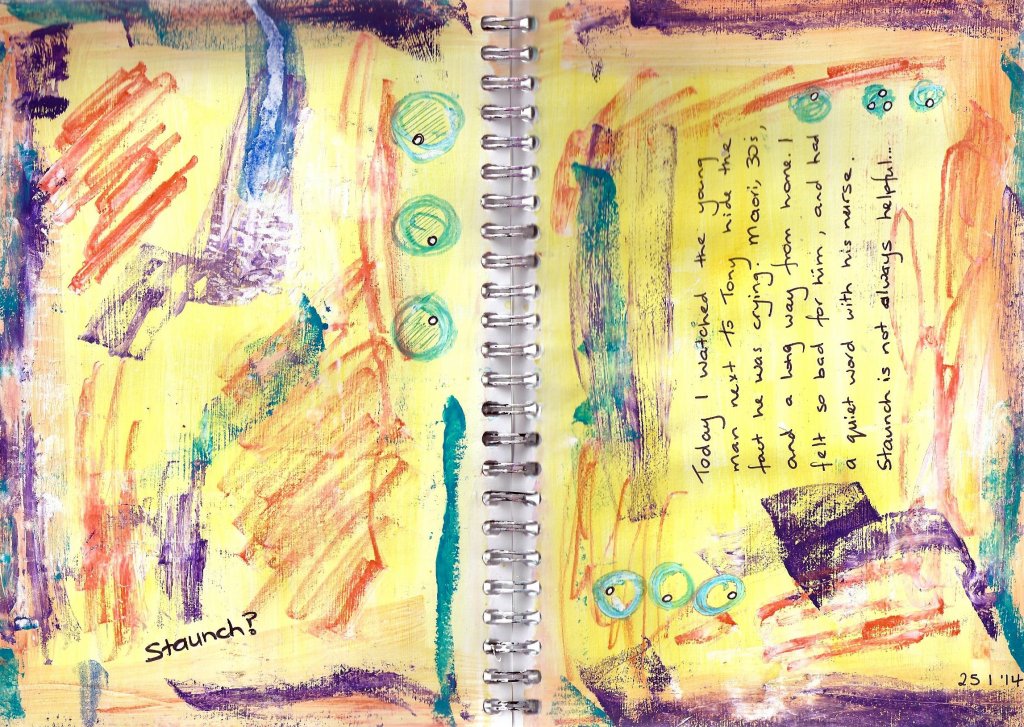 Staunch?
Today I watched the young
man next to Tony hide the
fact he was crying. Maori, 30s,
and a long way from home. I
felt so bad for him, and had
a quiet word with his nurse.
Staunch is not always helpful...
25 1 '14